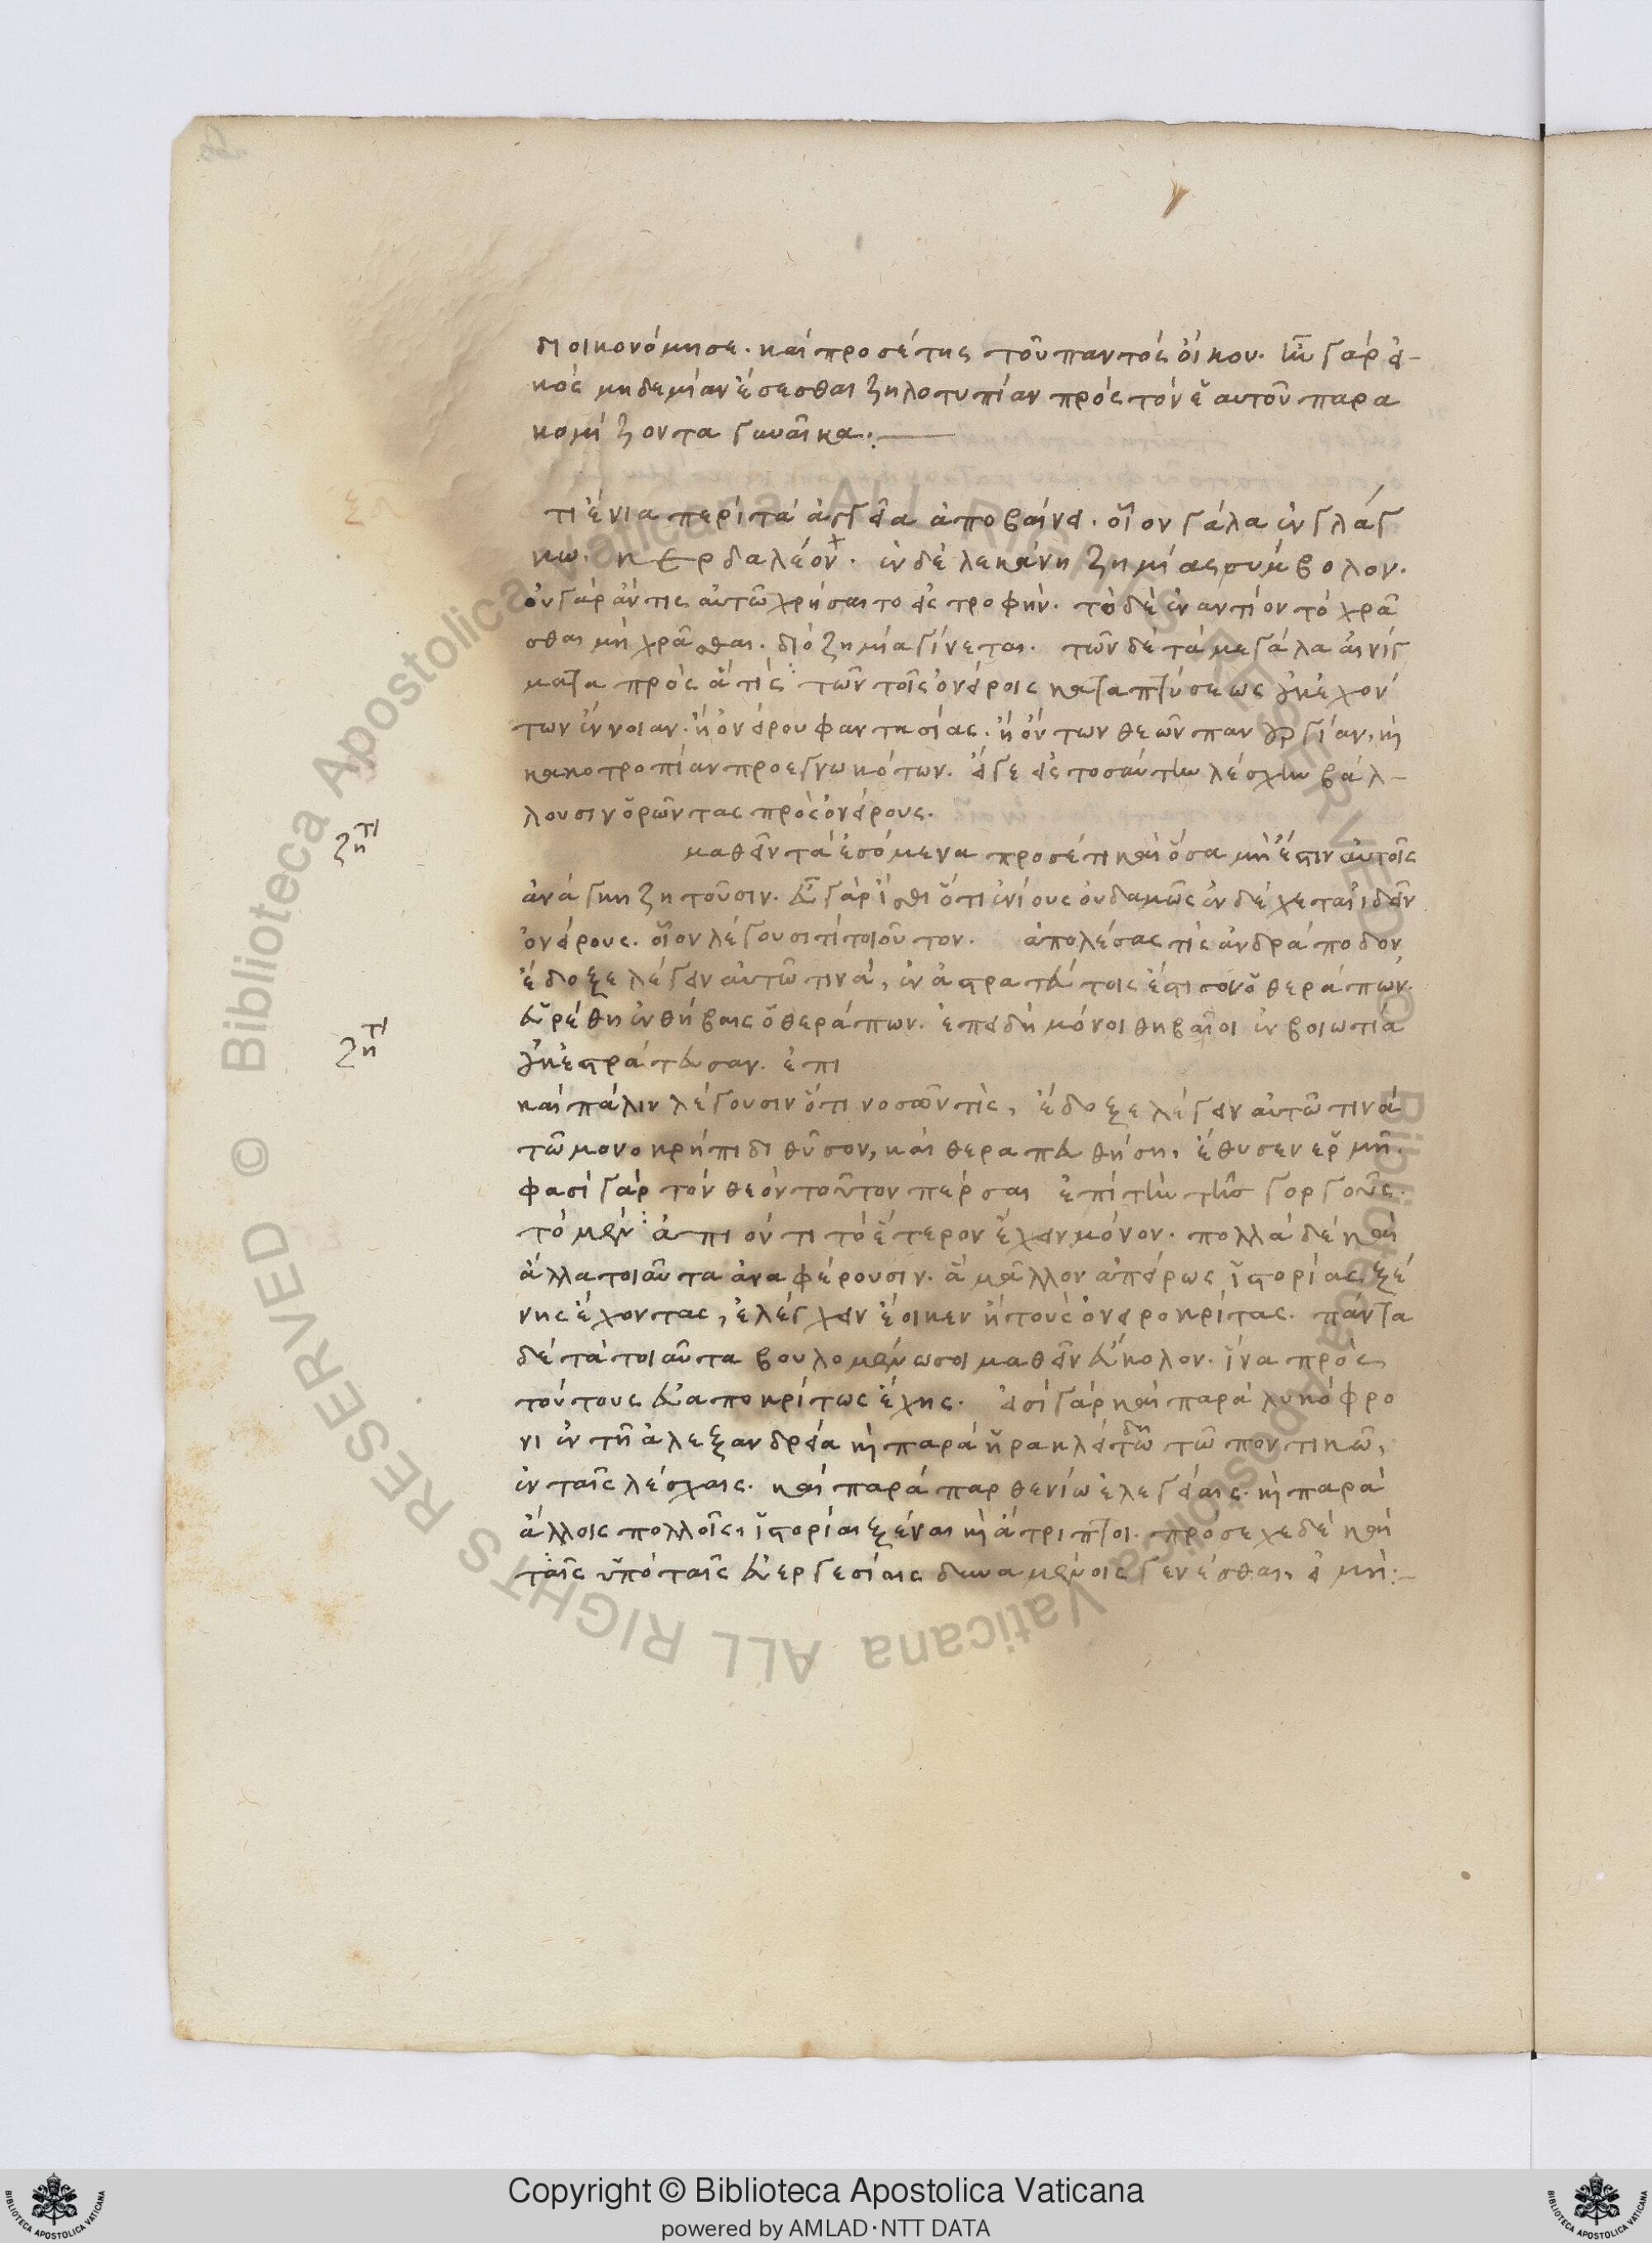 διοικονόμησε. καὶ προσέτης τοῦ παντὸς οἴκου. ἦν γὰρ εἰ-
κὸς μηδεμίαν ἔσεσθαι ζηλοτυπίαν πρὸς τὸν ἑαυτοῦ παρα
κομίζοντα γυναῖκα:
τι ἔνια περὶ τὰ ἀγγεῖα ἀποβαίνει. οἷον γάλα ἐν γλάγ
κω. κερδαλέον. ἐν δὲ λεκάνη ζημίας σύμβολον.
οὐ γὰρ ἄν τις αὐτῶ χρήσαιτο εἰς τροφήν. τὸ δὲ ἐναντίον τὸ χρᾶ
σθαι μὴ χρᾶσθαι. διὸ ζημία γίνεται. τῶν δὲ τὰ μεγάλα αἰνίγ
ματα πρὸς ἅ τις τῶν τοῖς ὀνείροις καταπτύσεως ἐκεχόν
των ἔννοιαν. ἢ ὀνείρου φαντασίας. ἢ ὄντων θεῶν πανουργίαν, ἢ
κακοτροπίαν προεγνωκότων. εἴγε εἰς τοσαύτην λέσχην βάλ-
λουσιν ὁρῶντας πρὸς ὀνείρους.
μαθεῖν τὰ ἐσόμενα προσέτι καὶ ὅσα μὴ ἔστιν αὐτοῖς
ἀνάγκη ζητοῦσιν. εὖ γὰρ ἴσθι ὅτι ἐνίους οὐδαμῶς ἐνδέχεται ἰδεῖν
ὀνείρους. οἷον λέγουσι τί τοιοῦτον. ἀπολέσας τις ἀνδράποδον
ἔδοξε λέγειν αὐτῶ τινά, ἐν ἀστρατεύτοις ἔστι σου ὁ θεράπων.
εὑρέθη ἐν θήβαις ὁ θεράπων. ἐπειδὴ μόνοι θηβαῖοι ἐν βοιωτία
ἐκεστράτευσαν. ἐπι
ζητ
ζητ
καὶ πάλιν λέγουσιν ὅτι νοσῶν τὶς, ἔδοξε λέγειν αὐτῶ τινά
τῶ μονοκρήπιδι θῦσον, καὶ θεραπευθήση, ἔθυσεν ἑρμῆ.
φασὶ γὰρ τὸν θεὸν τοῦτον πέρσαι ἐπὶ τὴν τῆς γοργοῦς.
τὸ μὲν ἀπιόντι τὸ ἕτερον ἔχειν μόνον. πολλὰ δὲ καὶ
ἄλλα τοιαῦτα ἀναφέρουσιν. ἃ μᾶλλον ἀπείρως ἱστορίας ξέ
νης ἔχοντας, ἐλέγχειν ἔοικεν ἢ τοὺς ὀνειροκρίτας. πάντα
δὲ τὰ τοιαῦτα βουλομένω σοι μαθεῖν εὔκολον. ἵνα πρὸς
τούτους εὐαποκρίτως ἔχης. εἰσὶ γὰρ καὶ παρὰ λυκόφρο
νι ἐν τῆ ἀλεξανδρεία καὶ παρὰ ἡρακλείδω τῶ ποντικῶ,
ἐν ταῖς λέσχαις. καὶ παρὰ παρθενίω ἐλεγείαις. καὶ παρὰ
ἄλλοις πολλοῖς, ἱστορίαι ξέναι καὶ ἄτριπτοι. πρόσεχε δὲ καὶ
ταῖς ὑπὸ ταῖς εὐεργεσίαις δυναμένοις γενέσθαι, εἰ μή:-
© Biblioteca Apostolica Vaticana ALL RIGHTS RESERVED © Biblioteca Apostolica Vaticana ALL RIGHTS RESERVED
Copyright © Biblioteca Apostolica Vaticana
powered by AMLAD·NTT DATA
BIBLIOTECA APOSTOLICA VATICANA
BIBLIOTECA APOSTOLICA VATICANA